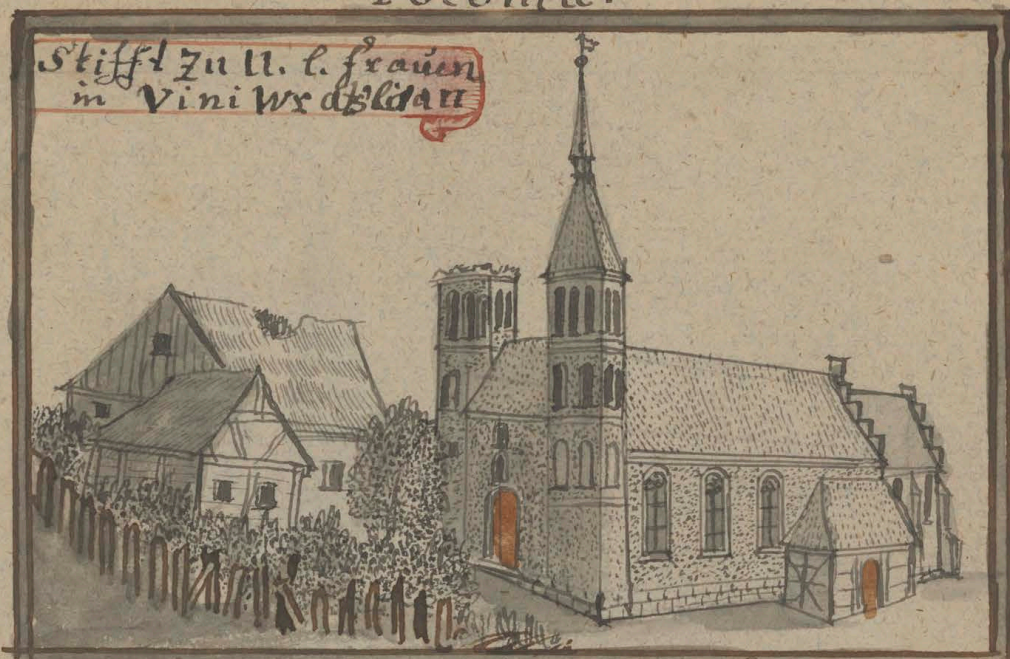 Stifft zu U. l. frauen
in Vini Wratslau